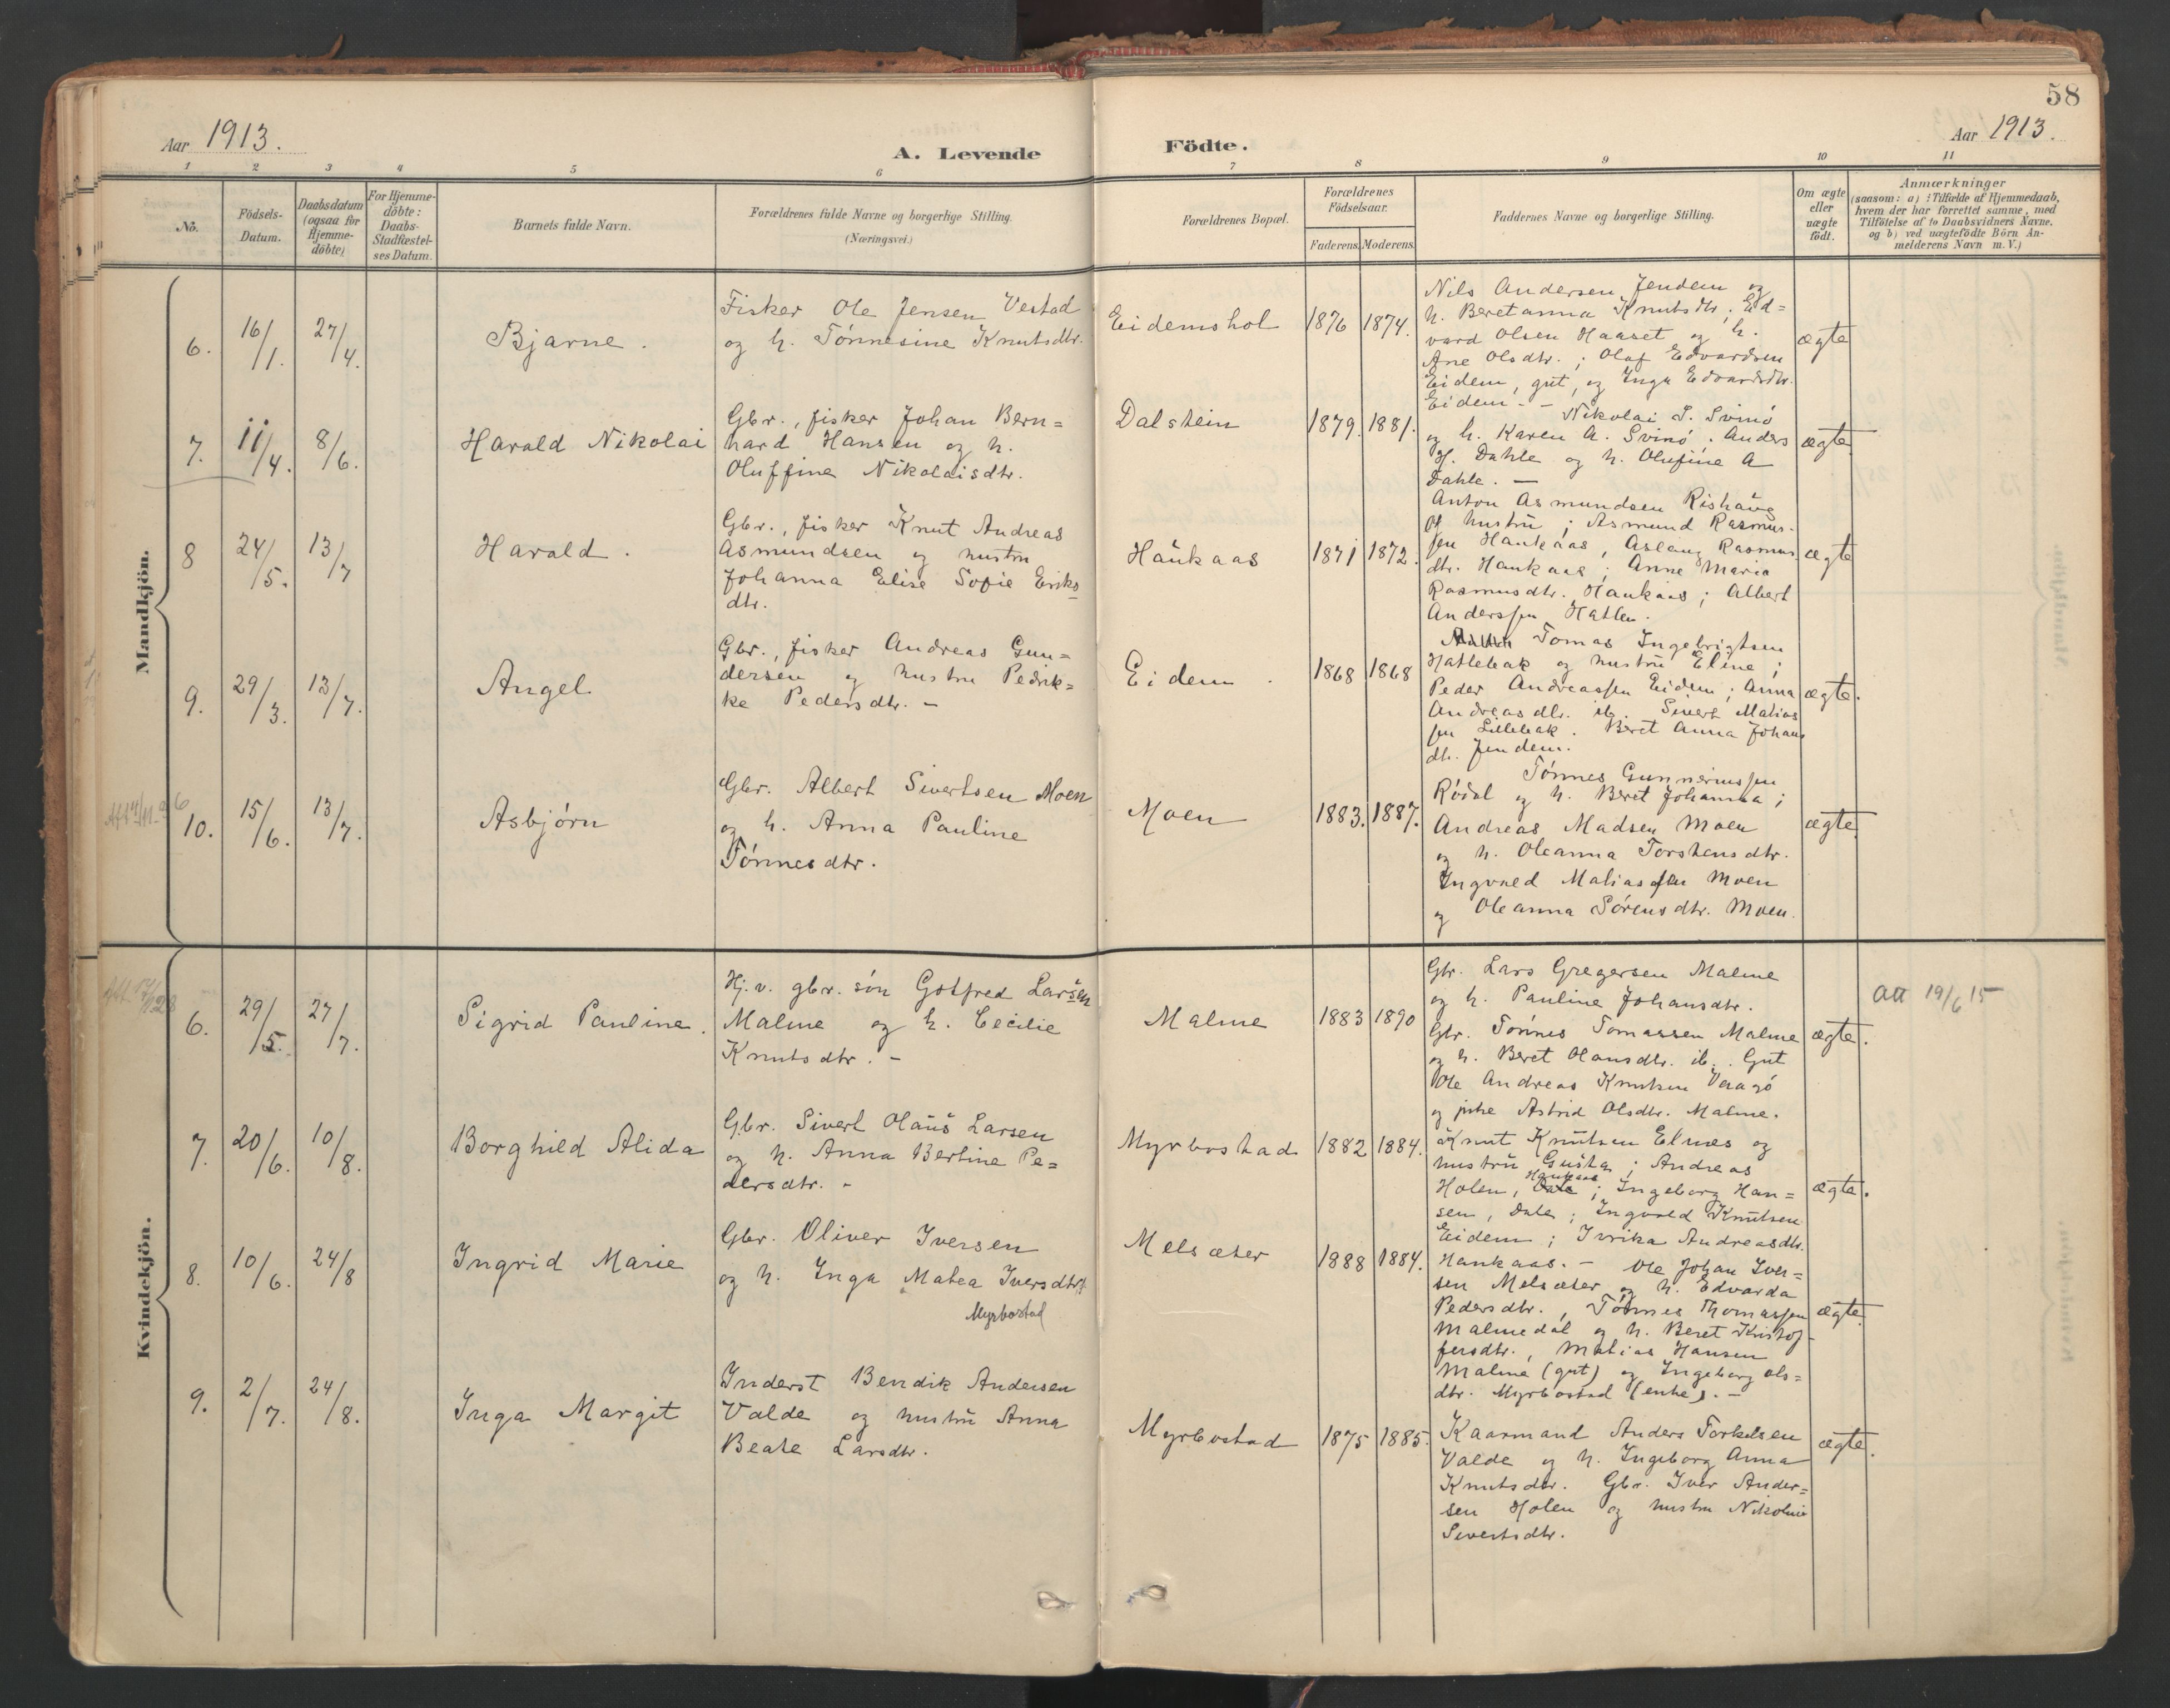 58
Aar 1913.
A. Levende
Födte.
Aar 1913.
1 2 3 4 5 6 7 8 9 10 11
No.
Födsels-
Datum.
Daabsdatum
(ogsaa for
Hjemme-
döbte)
For Hjemme-
döbte:
Daabs-
Stadfæstel-
ses Datum.
Barnets fulde Navn.
Forældrenes fulde Navne og borgerlige Stilling.
(Næringsvei.)
Forældrenes Bopæl.
Forældrenes
Födselsaar.
Faderens. Moderens.
Faddernes Navne og borgerlige Stilling.
Om ægte
eller
uægte
födt.
Anmærkninger
(saasom: a) i Tilfælde af Hjemmedaab,
hvem der har forrettet samme, med
Tilföielse af to Daabsvidners Navne.
og b) ved uægtefödte Börn An-
melderens Navn m. V.)
Mandkjön.
6.
16/1.
27/4.
Bjarne.
Fisker Ole Jensen Vestad
og h. Tønnesine Knutsdtr.
Eidemshol
1876
1874.
Nils Andersen Jendem og
h. Beretanna Knutsdtr; Ed=
vard Olsen Haaset og h.
Ane Olsdtr.; Olaf Edvardsen
Eidem, gut, og Inga Edvardsdtr.
Eidem. -
ægte
7.
11/4.
8/6.
Harald Nikolai
Gbr., fisker Johan Bern=
hard Hansen og h.
Oluffine Nikolaisdtr.
Dalstein
1879.
1881.
Nikolai S. Svinø
og h. Karen A. Svinø. Anders
H. Dahle og h. Olufine A
Dahle. -
ægte
8
24/5.
13/7
Harald.
Gbr., fisker Knut Andreas
Asmundsen og hustru
Johanna Elise Sofie Eriks
dtr.
Haukaas
1871
1872.
Anton Asmundsen Rishaug
og hustru; Asmund Rasmus-
sen Haukaas, Aslaug Rasmus
dtr. Haukaas; Anne Maria
Rasmusdtr. Haukaas; Albert
Anderssen Hatlen.
ægte
9.
29/3.
13/7.
Angel
Gbr., fisker Andreas Gun=
dersen og hustru Pedrik=
ke Pedersdtr. -
Eidem.
1868
1868
Tomas Ingebrigtsen
Hatlebak og hustru Eline;
Peder Andreassen Eidem; Anna
Andreasdtr. ib. Sivert Matias
sen Lillebak. Beret Anna Johans
dtr. Jendem.
ægte.
10.
15/6.
13/7.
Asbjørn
Gbr. Albert Sivertsen Moen
og h. Anna Pauline
Tønnesdtr.
Moen
1883.
1887.
Tønnes Gunneriussen
Rødal og h. Beret Johanna;
Andreas Madsen Moen
og h. Oleanna Torstensdtr.
Ingvald Matiassen Moen
og Oleanna Sørensdtr. Moen.
ægte
Kvindekjön.
6.
29/5.
27/7.
Sigrid Pauline.
Hj. v. gbr. søn Gotfred Larsen
Malme og h. Cecilie
Knutsdtr. -
Malme
1883
1890
Gbr. Lars Gregersen Malme
og h. Pauline Johansdtr.
Gbr. Tønnes Tomassen Malme
og h. Beret Hansdtr. ib. Gut
Ole Andreas Knutsen Vaagø
og pike Astrid Olsdtr. Malme.
ægte.
Att 19/6 15
7.
20/6.
10/8.
Borghild Alida
Gbr. Sivert Olaus Larsen
og h. Anna Bertine Pe=
dersdtr. -
Myrbostad
1882
1884.
Knut Knutsen Elnes og
hustru Gusta; Andreas
Haukaas
Holen, Dale; Ingeborg Han=
sen, Dale; Ingvald Knutsen
Eidem; Ivrika Andreasdtr.
Haukaas. -
ægte.
8.
10/6.
24/8
Ingrid Marie
Gbr. Oliver Iversen
og h. Inga Matea Iversdtr
Myrbostad
Melsæter
1888
1884.
Ole Johan Iver=
sen Melsæter og h. Edvarda
Pedersdtr., Tønnes Thomassen
Malmedal og h. Beret Kristof-
fersdtr., Matias Hansen
Malme (gut) og Ingeborg Ols=
dtr. Myrbostad (enke). -
ægte.
9.
2/7.
24/8.
Inga Margit
Inderst Bendik Andersen
Valde og hustru Anna
Beate Larsdtr.
Myrbostad
1875
1885.
Kaarmand Anders Torkelsen
Valde og h. Ingeborg Anna
Knutsdtr. Gbr. Iver Ander=
sen Holen og hustru Nikoline
Sivertsdtr.
ægte.